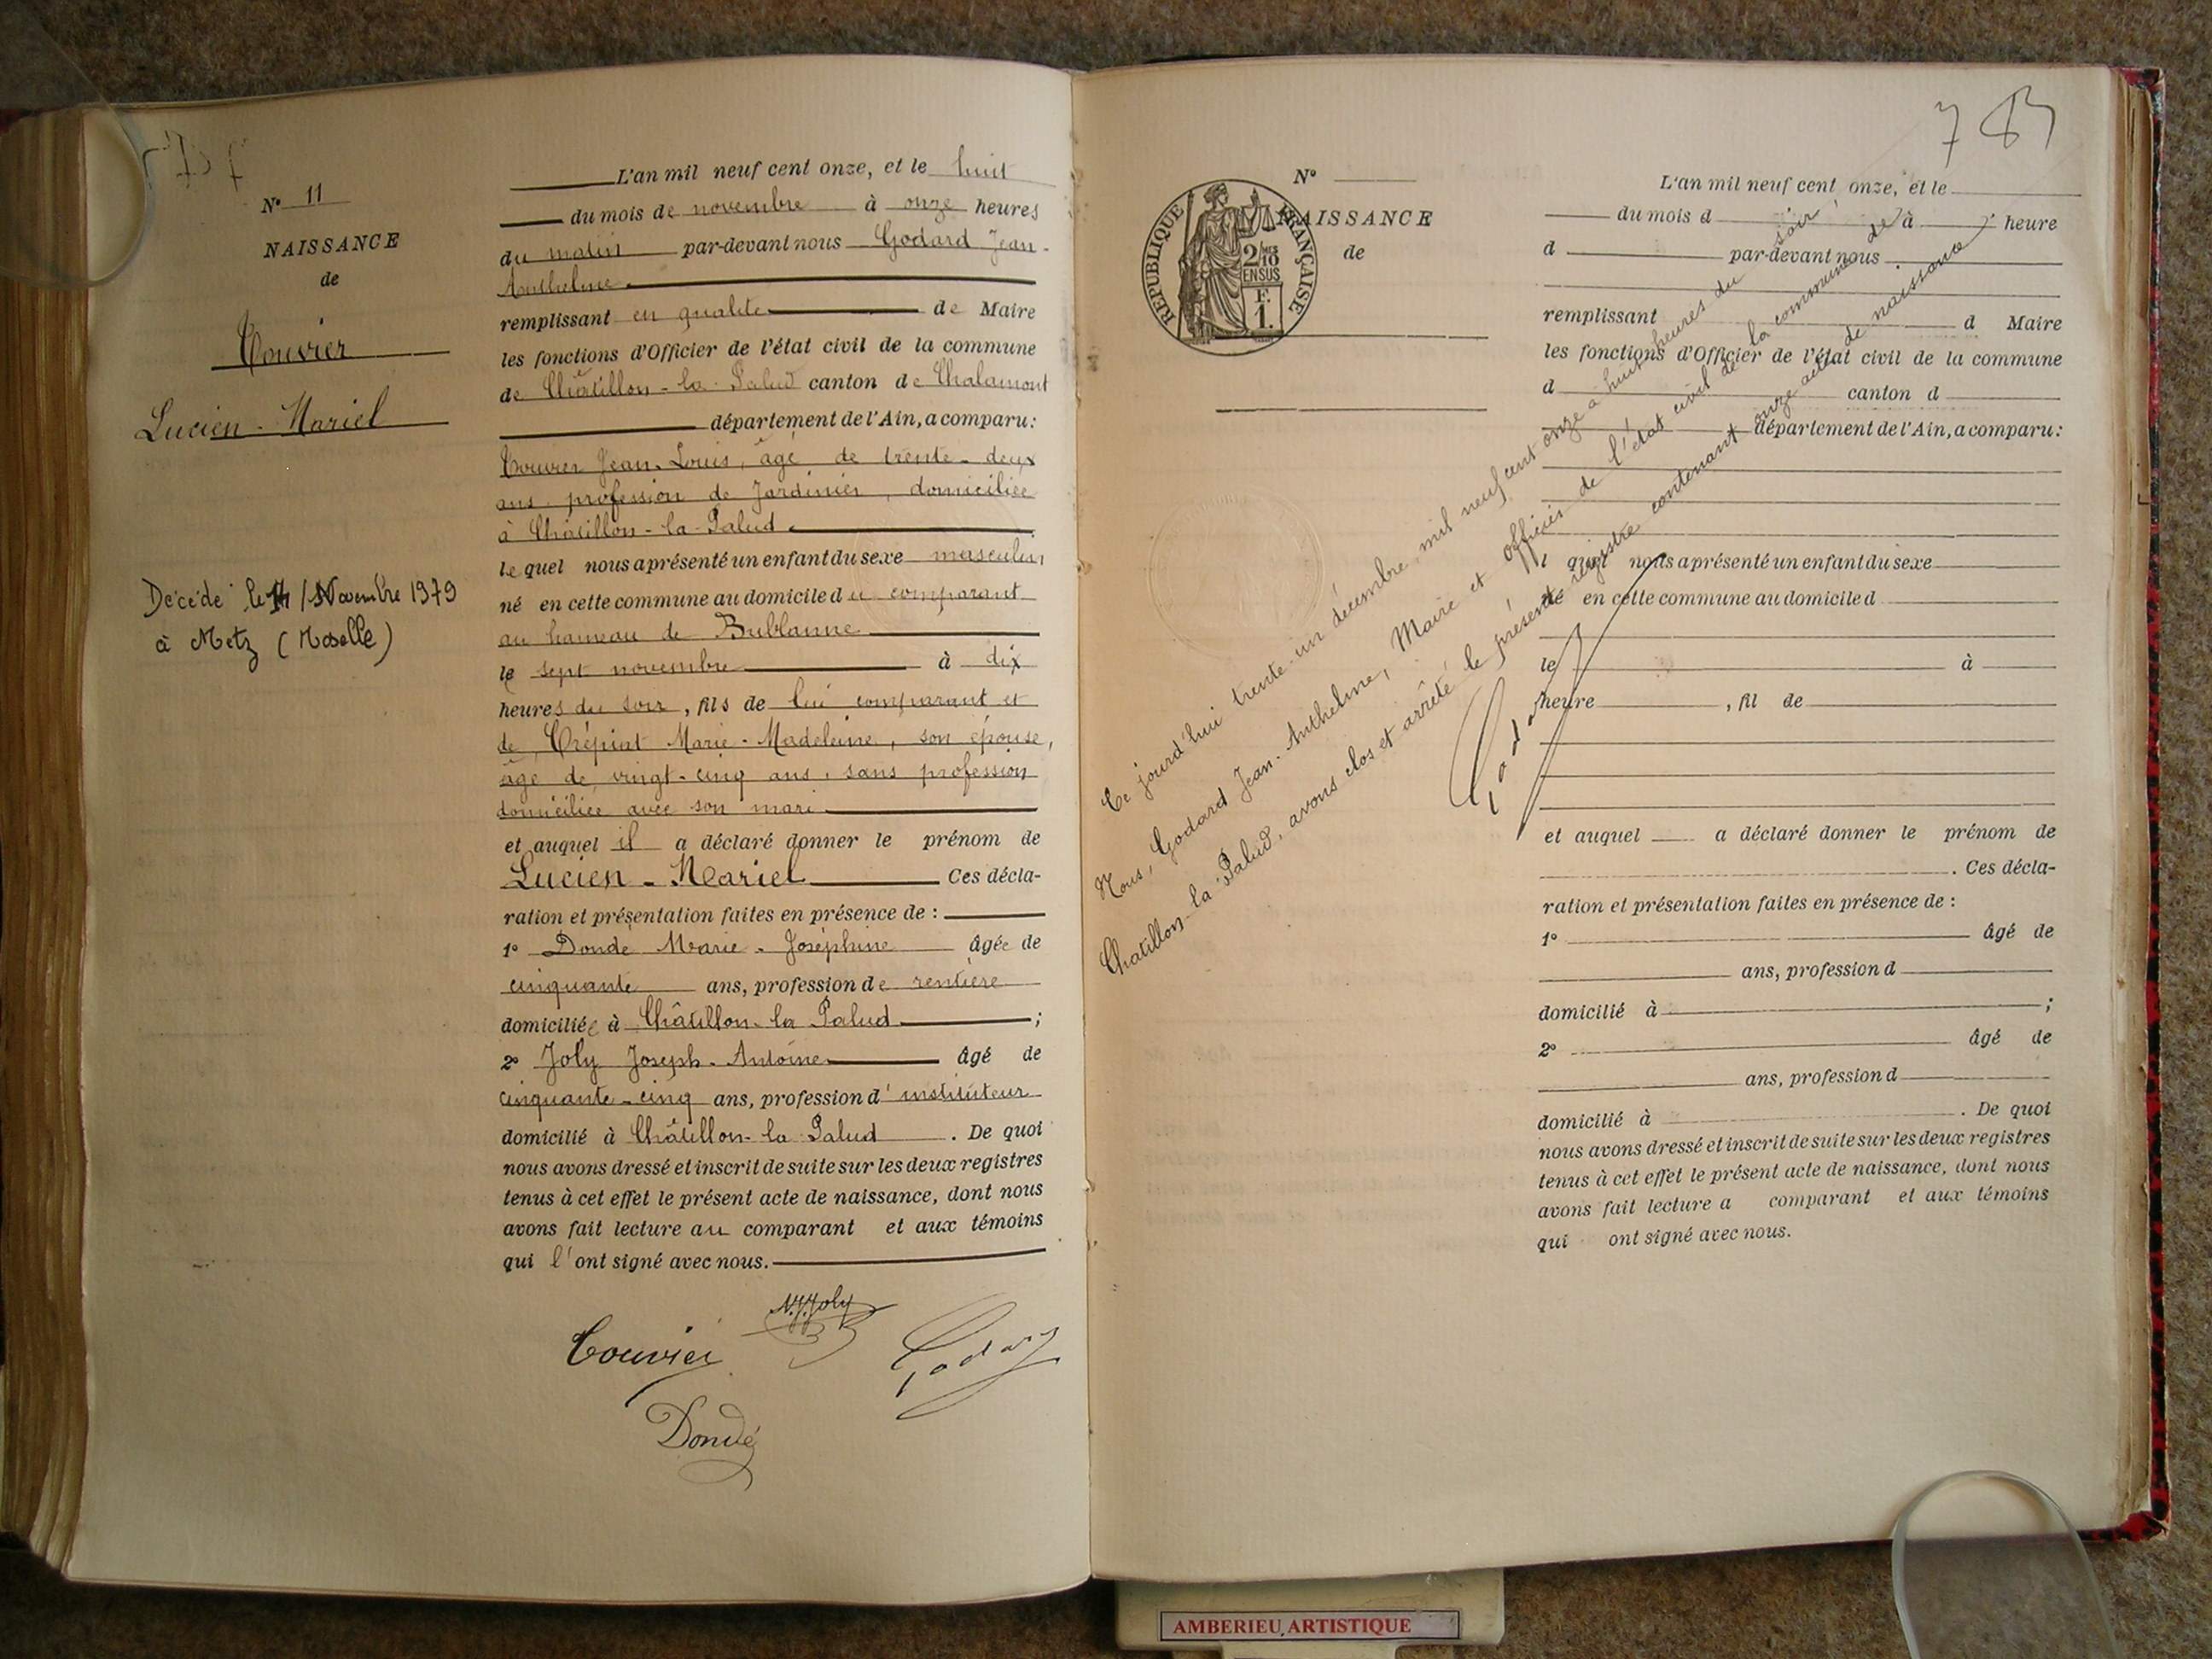 N° 11
NAISSANCE
de
Touvier
Lucien - Mariel
Décédé le Novembre 1979
à Metz (Moselle)
L'an mil neuf cent onze, et le huit
du mois de novembre à onze heures
du matin par-devant nous Godard Jean-
Anthelme
remplissant en qualité de Maire
les fonctions d'Officier de l'état civil de la commune
de Châtillon-la-Palud canton de Chalamont
département de l'Ain, a comparu:
Touvier Jean-Louis, âgé de trente-deux
ans profession de Jardinier, domiciliée
à Châtillon-la-Palud.
lequel nous a présenté un enfant du sexe masculin,
né en cette commune au domicile du comparant
au hameau de Bublanne
le sept novembre à dix
heures du soir, fils de lui comparant et
de Crépiat Marie-Madeleine, son épouse,
âgé de vingt-cinq ans, sans profession
domiciliée avec son mari
et auquel il a déclaré donner le prénom de
Lucien - Mariel Ces décla-
ration et présentation faites en présence de :
1° Dondé Marie-Joséphine âgée de
cinquante ans, profession de rentière
domiciliée à Châtillon-la-Palud ;
2° Joly Joseph-Antoine âgé de
cinquante-cinq ans, profession d'instituteur
domicilié à Châtillon-la-Palud . De quoi
nous avons dressé et inscrit de suite sur les deux registres
tenus à cet effet le présent acte de naissance, dont nous
avons fait lecture au comparant et aux témoins
qui l'ont signé avec nous.
Touvier Joly Godard
Dondé
783
N°
NAISSANCE
de
RÉPUBLIQUE FRANÇAISE
2/10
EN SUS
F.
1.
L'an mil neuf cent onze, et le
du mois d à heure
d par-devant nous
remplissant d Maire
les fonctions d'Officier de l'état civil de la commune
d canton d
département de l'Ain, a comparu:
l quel nous a présenté un enfant du sexe
né en cette commune au domicile d
le à
heure , fil de
et auquel a déclaré donner le prénom de
. Ces décla-
ration et présentation faites en présence de :
1° âgé de
ans, profession d
domicilié à ;
2° âgé de
ans, profession d
domicilié à . De quoi
nous avons dressé et inscrit de suite sur les deux registres
tenus à cet effet le présent acte de naissance, dont nous
avons fait lecture a comparant et aux témoins
qui ont signé avec nous.
Ce jourd'hui trente-un décembre mil neuf cent onze à huit heures du soir,
Nous, Godard Jean-Anthelme, Maire et officier de l'état civil de la commune de
Chatillon-la-Palud, avons clos et arrêté le présent registre contenant onze actes de naissance
Godard
AMBERIEU ARTISTIQUE